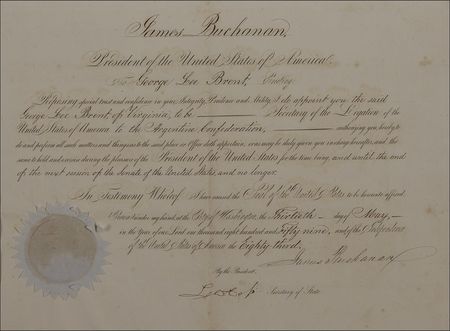 James Buchanan,
President of the United States of America.
To George Lee Brent, Greeting:
Reposing special trust and confidence in your Integrity, Prudence and Ability, I do appoint you the said
George Lee Brent, of Virginia, to be Secretary of the Legation of the
United States of America to the Argentine Confederation, authorizing you, hereby to
do and perform all such matters and things as to the said place or Office doth appertain, or as may be duly given you in charge hereafter, and the
same to hold and exercise during the pleasure of the President of the United States for the time being, and until the end
of the next session of the Senate of the United States, and no longer.
In Testimony Whereof, I have caused the Seal of the United States to be hereunto affixed.
Given under my hand at the City of Washington, the Thirtieth day of May,
in the Year of our Lord one thousand eight hundred and Fifty nine, and of the Independence
of the United States of America the Eighty third.
James Buchanan
By the President,
Secretary of State.